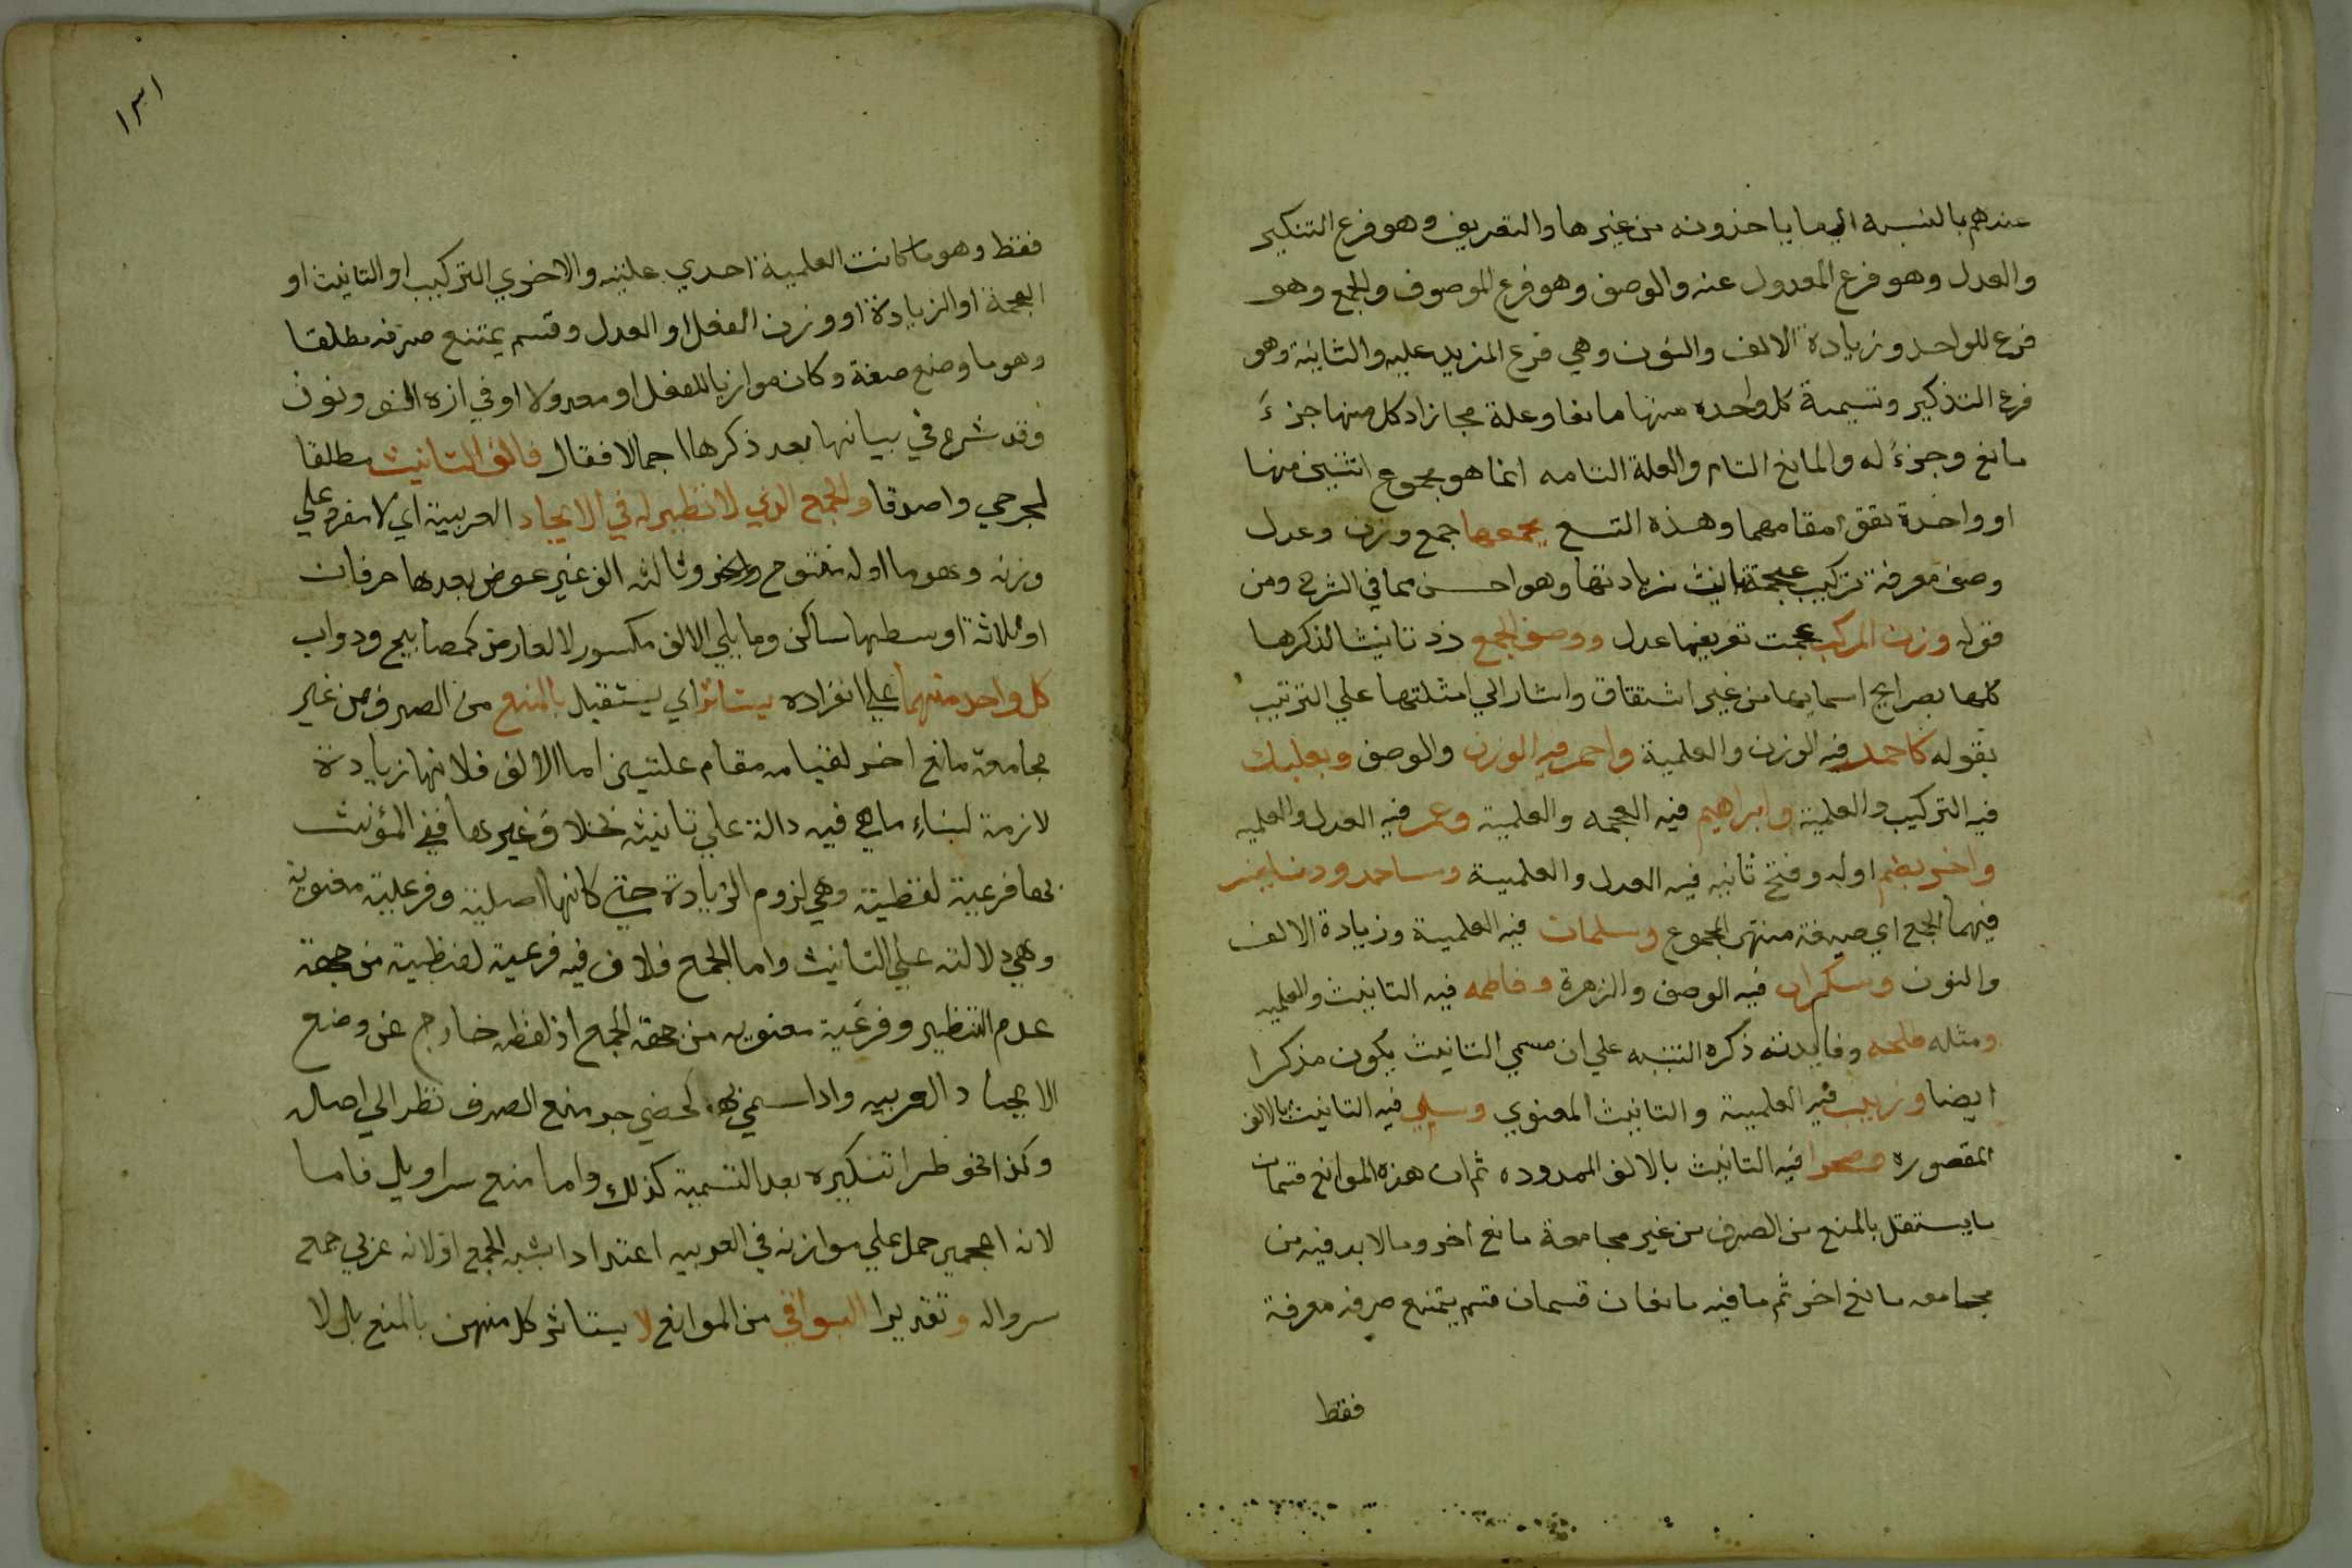 عندهم بالنسبة الي ما ياخذونه من غيرها والتعريف وهو فرع التنكير
والعدل وهو فرع المعدول عنه والوصف وهو فرع الموصوف والجمع وهو
فرع للواحد وزيادة الالف والنون وهي فرع المزيد عليه والثانية وهو
فرع التذكير وتسمية كل واحده منها مانعا وعلة مجازا اذ كل منها جزء
مانع وجزء له والمانع التام والعلة التامه انما هو مجموع اثنين منها
او واحدة تقوم مقامهما وهذه التسع يجمعها جمع وزن وعدل
وصف معرفة تركيب عجمة تانيث زيادتها وهو احسن مما في الشرح ومن
قوله وزن المركب عجمت تعريفها عدل ووصف الجمع زد تانيثا لذكرها
كلها بصرايح اسمايها من غير اشتقاق واشار الي امثلتها علي الترتيب
بقوله كاحمد فيه الوزن والعلمية واحمر فيه الوزن والوصف وبعلبك
فيه التركيب والعلمية وابراهيم فيه العجمه والعلمية وعمر فيه العدل والعلميه
واخر بضم اوله وفتح ثانيه فيه العدل والعلمية ومساجد ودنانير
فيهما الجمع اي صيغة منتهي الجموع وسلمان فيه العلمية وزيادة الالف
والنون وسكران فيه الوصف والزهرة وفاطمه فيه التانيث والعلميه
ومثله طلحه وفايدته ذكره التنبيه علي ان مسمي التانيث يكون مذكرا
ايضا وزينب فيه العلمية والتانيث المعنوي وسلمي فيه التانيث بالالف
المقصوره وصحرا فيه التانيث بالالف الممدوده ثم ان هذه الموانع قسمان
ما يستقل بالمنع من الصرف من غير مجامعة مانع اخر وما لا بد فيه من
مجامعه مانع اخر ثم ما فيه مانعان قسمان قسم يمتنع صرفه معرفة
فقط
١٣١
فقط وهو ما كانت العلمية احدي علتيه والاخري التركيب او التانيث او
العجمة او الزيادة او وزن الفعل او العدل وقسم يمتنع صرفه مطلقا
وهو ما وضع صفة وكان موازيا للفعل او معدولا او في اخره الف ونون
وقد شرع في بيانها بعد ذكرها اجمالا فقال فالف التانيث مطلقا
لجرحي واصدقا والجمع الذي لا نظير له في الايجاد العربية اي لا مفرد علي
وزنه وهو ما اوله مفتوح وثالثه الف غير عوض بعدها حرفان
او ثلاثة اوسطها ساكن وما يلي الالف مكسور لا لعارض كمصابيح ودواب
كل واحد منهما علي انفراده يستاثر اي يستقبل بالمنع من الصرف من غير
مجامعة مانع اخر لقيامه مقام علتين اما الالف فلانها زيادة
لازمة لبناء ما هي فيه دالة علي تانيثه بخلاف غيرها ففي المؤنث
بها فرعية لفظية وهي لزوم الزيادة حتي كانها اصلية وفرعية معنوية
وهي دلالته علي التانيث واما الجمع فلان فيه فرعية لفظية من جهة
عدم النظير وفرعية معنويه من جهة الجمع اذ لفظه خارج عن وضع
الايجاد العربيه واذا سمي به منع الصرف نظر الي اصله
وكذا نحو طرا تنكيره بعد التسمية كذلك واما منع سراويل فاما
لانه اعجمي حمل علي موازنه في العربيه اعتدادا بشبه الجمع او لانه عربي جمع
سرواله وتقديرا البواقي من الموانع لا يستاثر كل منهن بالمنع بل لا